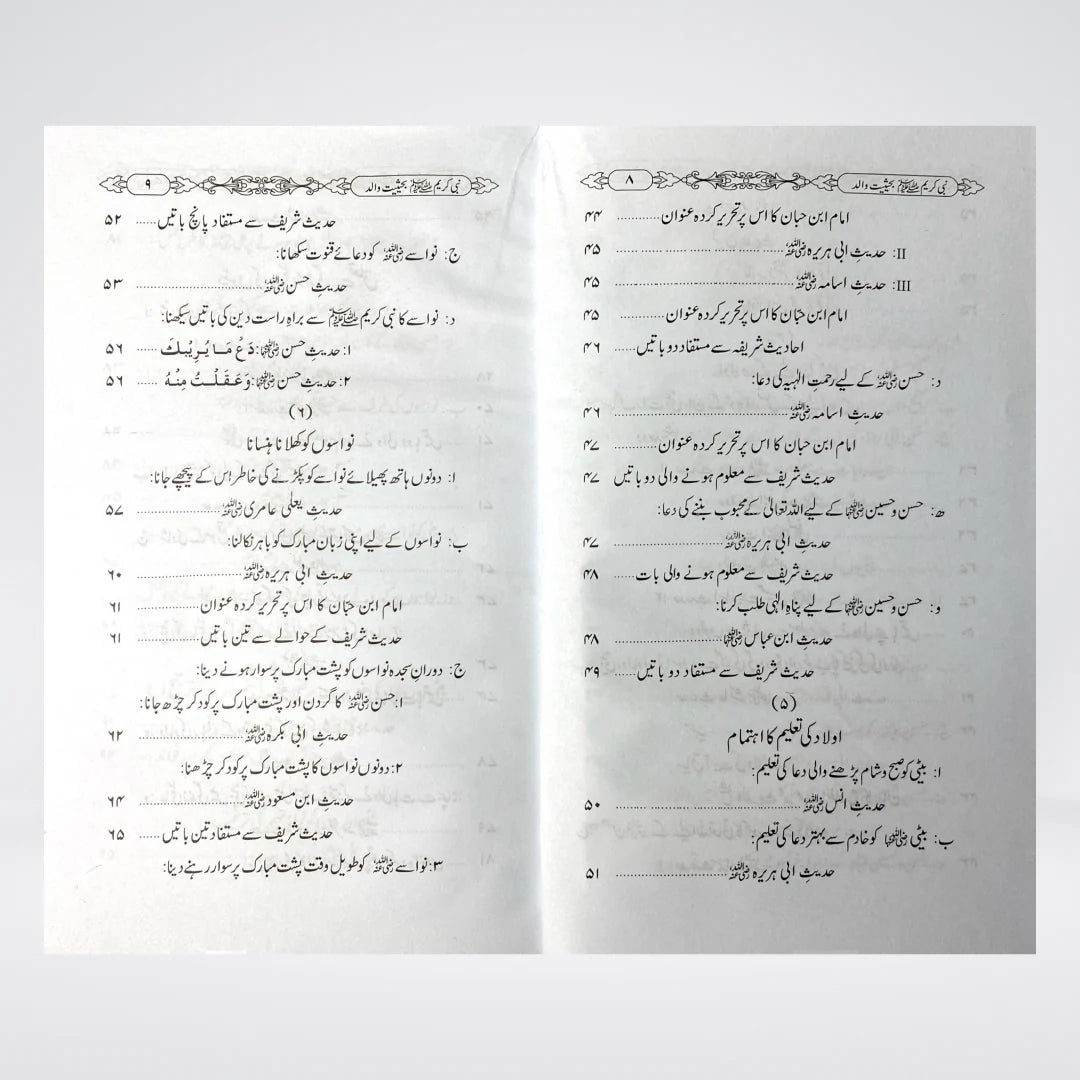 نبی کریم ﷺ بحیثیت والد ۸
امام ابن حبان کا اس پر تحریر کردہ عنوان ............ ۴۴
II: حدیثِ ابی ہریرہ رضی اللہ عنہ ............ ۴۵
III: حدیثِ اسامہ رضی اللہ عنہ ............ ۴۵
امام ابن حبّان کا اس پر تحریر کردہ عنوان ............ ۴۵
احادیث شریفہ سے مستفاد دو باتیں ...... ۴۶
د: حسن رضی اللہ عنہ کے لیے رحمتِ الٰہیہ کی دعا:
حدیثِ اسامہ رضی اللہ عنہ ............ ۴۶
امام ابن حبان کا اس پر تحریر کردہ عنوان ............ ۴۷
حدیث شریف سے معلوم ہونے والی دو باتیں ۴۷
ھ: حسن و حسین رضی اللہ عنہما کے لیے اللہ تعالیٰ کے محبوب بننے کی دعا:
حدیثِ ابی ہریرہ رضی اللہ عنہ ............ ۴۷
حدیث شریف سے معلوم ہونے والی بات ...... ۴۸
و: حسن و حسین رضی اللہ عنہما کے لیے پناہِ الٰہی طلب کرنا:
حدیثِ ابن عباس رضی اللہ عنہما ............ ۴۸
حدیث شریف سے مستفاد دو باتیں ...... ۴۹
(۵)
اولاد کی تعلیم کا اہتمام
ا: بیٹی کو صبح و شام پڑھنے والی دعا کی تعلیم:
حدیثِ انس رضی اللہ عنہ ............ ۵۰
ب: بیٹی رضی اللہ عنہا کو خادم سے بہتر دعا کی تعلیم:
حدیثِ ابی ہریرہ رضی اللہ عنہ ............ ۵۱
نبی کریم ﷺ بحیثیت والد ۹
حدیث شریف سے مستفاد پانچ باتیں ...... ۵۲
ج: نواسے رضی اللہ عنہ کو دعائے قنوت سکھانا:
حدیثِ حسن رضی اللہ عنہ ............ ۵۳
د: نواسے کا نبی کریم ﷺ سے براہِ راست دین کی باتیں سیکھنا:
۱: حدیثِ حسن رضی اللہ عنہما: دَعْ مَا یُرِیْبُكَ ...... ۵۶
۲: حدیثِ حسن رضی اللہ عنہما: وَعَقَلْتُ مِنْهُ ...... ۵۶
(۶)
نواسوں کو کھلانا ہنسانا
ا: دونوں ہاتھ پھیلائے نواسے کو پکڑنے کی خاطر اس کے پیچھے جانا:
حدیثِ یعلی عامری رضی اللہ عنہ ............ ۵۷
ب: نواسوں کے لیے اپنی زبان مبارک کو باہر نکالنا:
حدیثِ ابی ہریرہ رضی اللہ عنہ ............ ۶۰
امام ابن حبّان کا اس پر تحریر کردہ عنوان ............ ۶۱
حدیث شریف کے حوالے سے تین باتیں ............ ۶۱
ج: دورانِ سجدہ نواسوں کو پشت مبارک پر سوار ہونے دینا:
۱: حسن رضی اللہ عنہ کا گردن اور پشت مبارک پر کود کر چڑھ جانا:
حدیثِ ابی بکرہ رضی اللہ عنہ ............ ۶۲
۲: دونوں نواسوں کا پشت مبارک پر کود کر چڑھنا:
حدیثِ ابن مسعود رضی اللہ عنہ ............ ۶۴
حدیث شریف سے مستفاد تین باتیں ...... ۶۵
۳: نواسے رضی اللہ عنہ کو طویل وقت پشت مبارک پر سوار رہنے دینا: